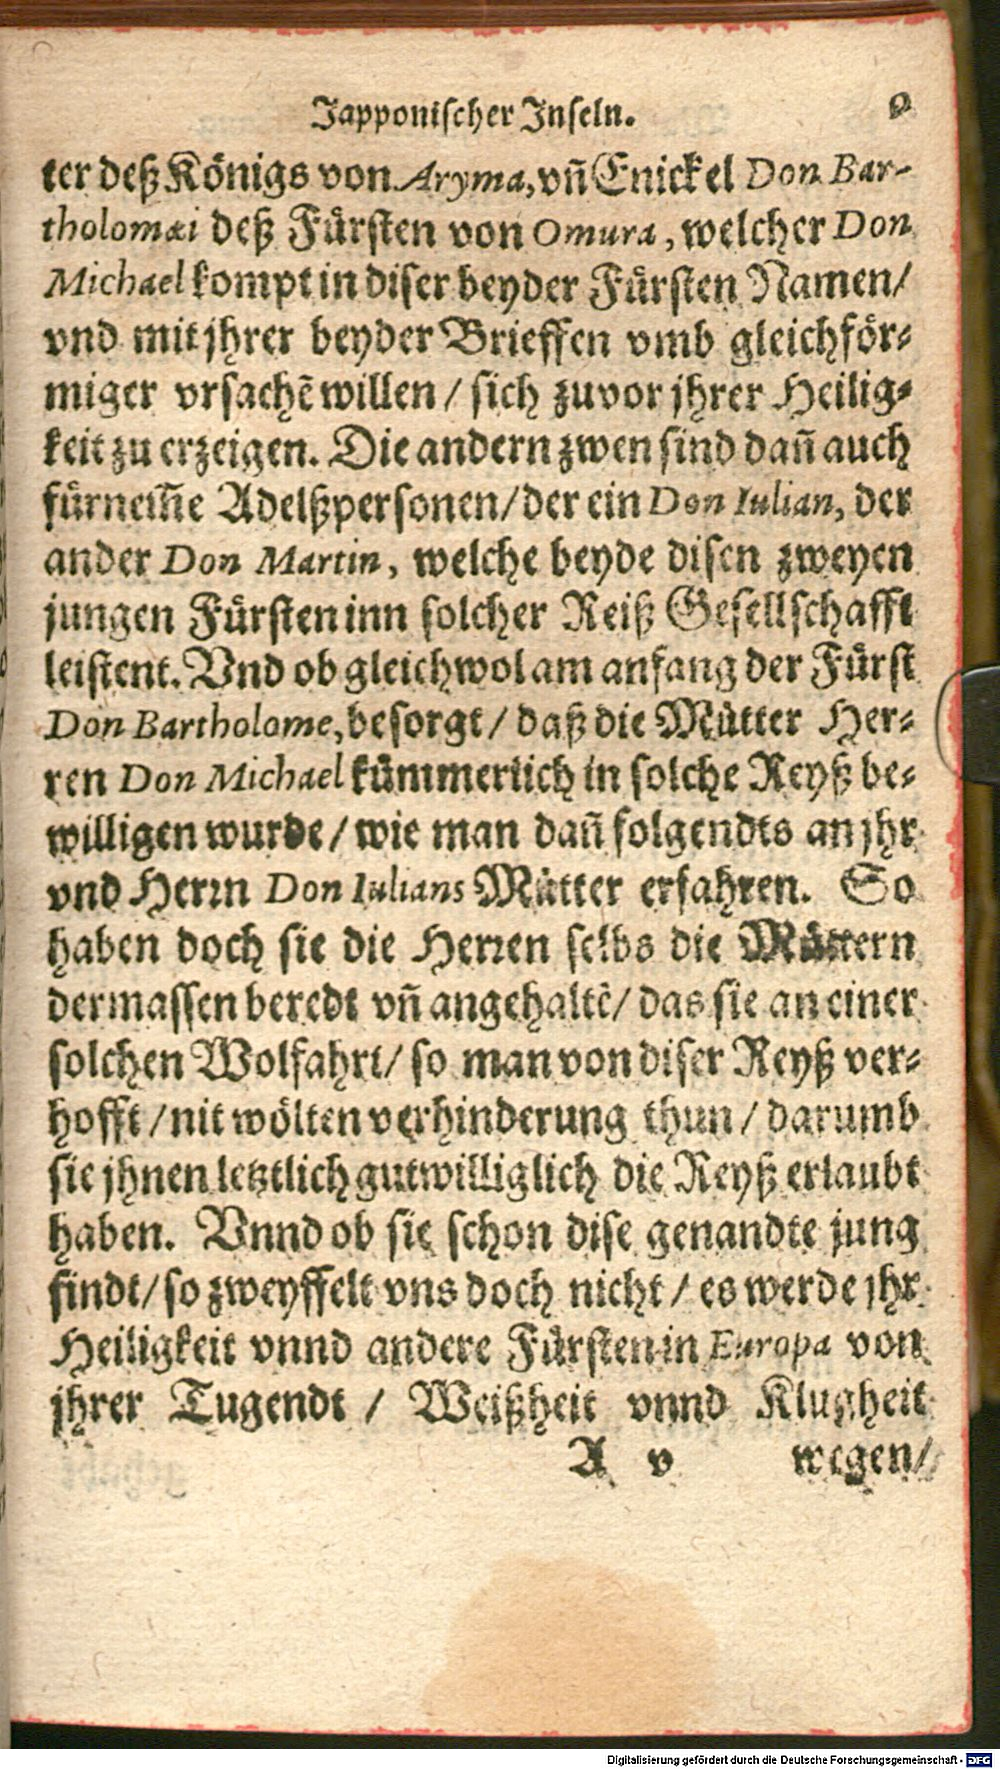 Japponischer Inseln. 9
ter deß Königs von Aryma, vñ Enickel Don Bar-
tholomæi deß Fürsten von Omura, welcher Don
Michael kompt in diser beyder Fürsten Namen/
vnd mit jhrer beyder Brieffen vmb gleichför-
miger vrsachẽ willen / sich zuvor jhrer Heilig-
keit zu erzeigen. Die andern zwen sind dañ auch
fürnem̃e Adelßpersonen/ der ein Don Iulian, der
ander Don Martin, welche beyde disen zweyen
jungen Fürsten inn solcher Reiß Gesellschafft
leistent. Vnd ob gleichwol am anfang der Fürst
Don Bartholome, besorgt / daß die Mütter Her-
ren Don Michael kümmerlich in solche Reyß be-
willigen wurde / wie man dañ folgendts an jhr
vnd Herrn Don Iulians Mütter erfahren. So
haben doch sie die Herren selbs die Müttern
dermassen beredt vñ angehaltẽ/ das sie an einer
solchen Wolfahrt/ so man von diser Reyß ver-
hofft / nit wölten verhinderung thun / darumb
sie jhnen letztlich gutwilliglich die Reyß erlaubt
haben. Vnnd ob sie schon dise genandte jung
sindt/ so zweyffelt vns doch nicht / es werde jhr
Heiligkeit vnnd andere Fürsten in Europa von
jhrer Tugendt / Weißheit vnnd Klugheit
A v wegen/
Digitalisierung gefördert durch die Deutsche Forschungsgemeinschaft - DFG